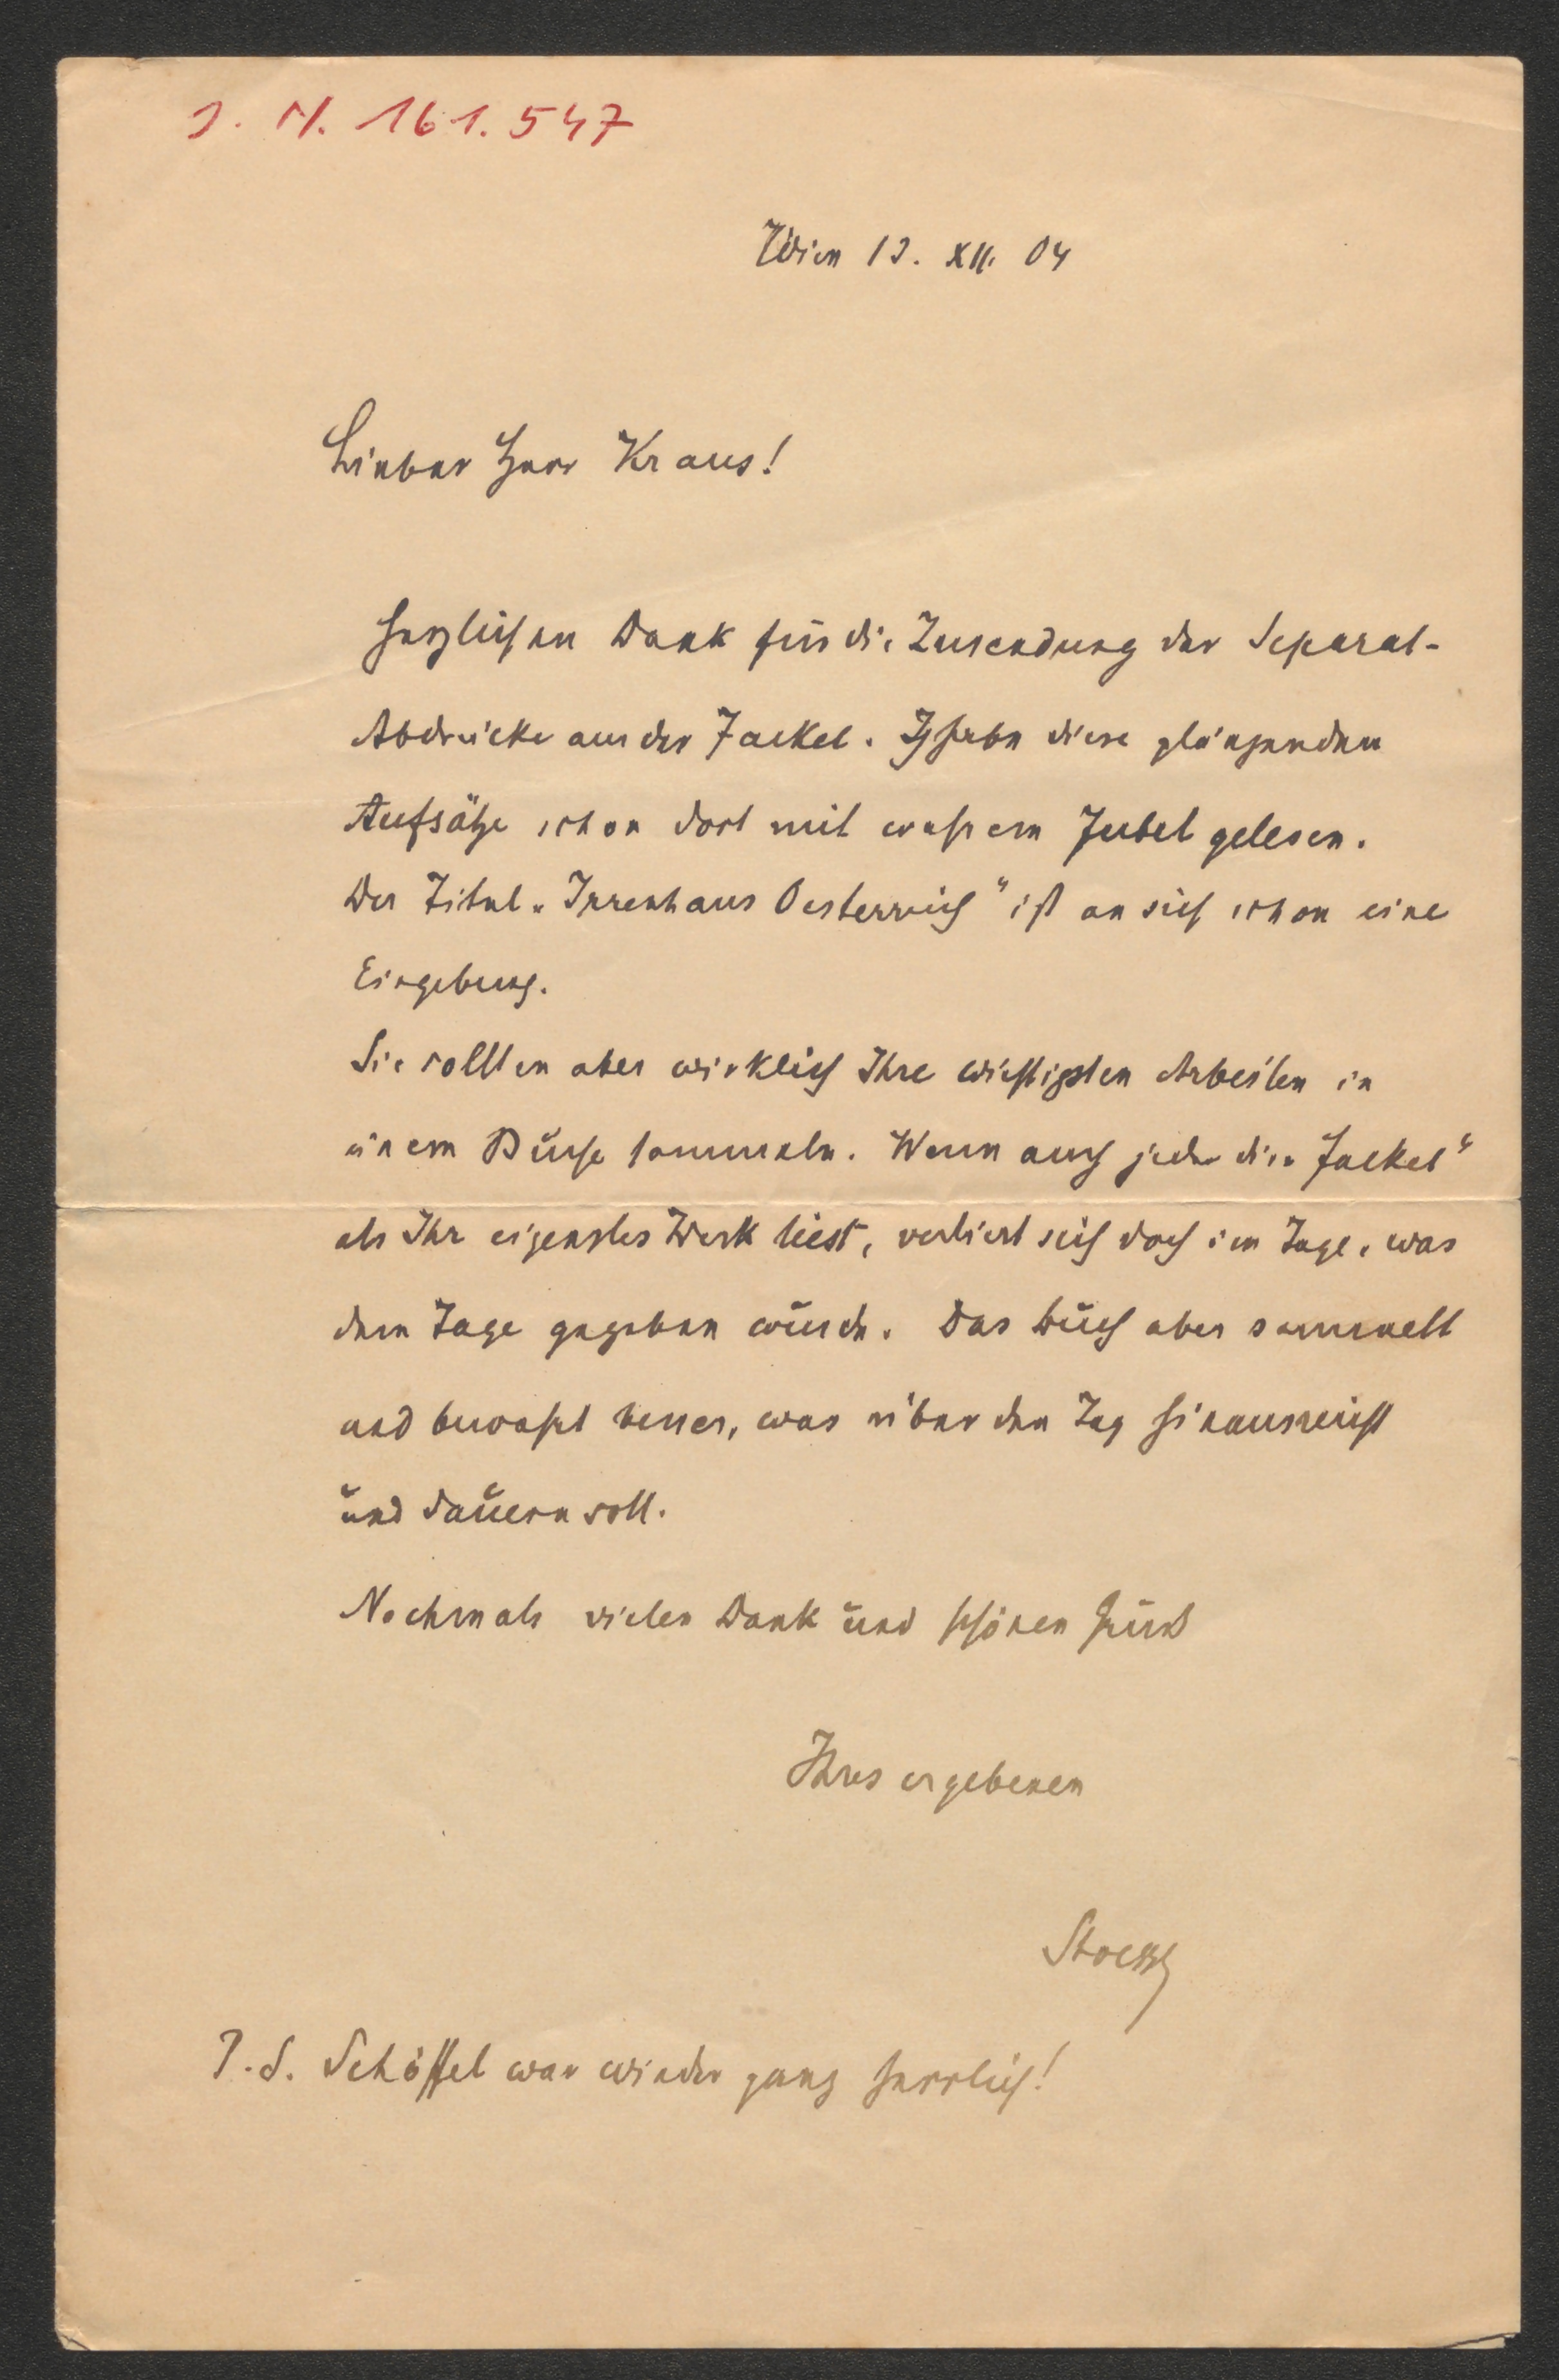 J. N. 161.547
Wien 13. XII. 04
Lieber Herr Kraus!
Herzlichen Dank für die Zusendung der Separat-
Abdrücke aus der Fackel. Ich habe diese glänzenden
Aufsätze schon dort mit wahrem Jubel gelesen.
Der Titel „Irrenhaus Oesterreich“ ist an sich schon eine
Eingebung.
Sie sollten aber wirklich Ihre wichtigsten Arbeiten in
einem Buche sammeln. Wenn auch jeder die „Fackel“
als Ihr eigenstes Werk liest, verliert sich doch im Tage, was
dem Tage gegeben wurde. Das Buch aber sammelt
und bewahrt besser, was über den Tag hinausreicht
und dauern soll.
Nochmals vielen Dank und schönen Gruß
Ihres ergebenen
Stoessl
P.S. Schöffel war wieder ganz herrlich!